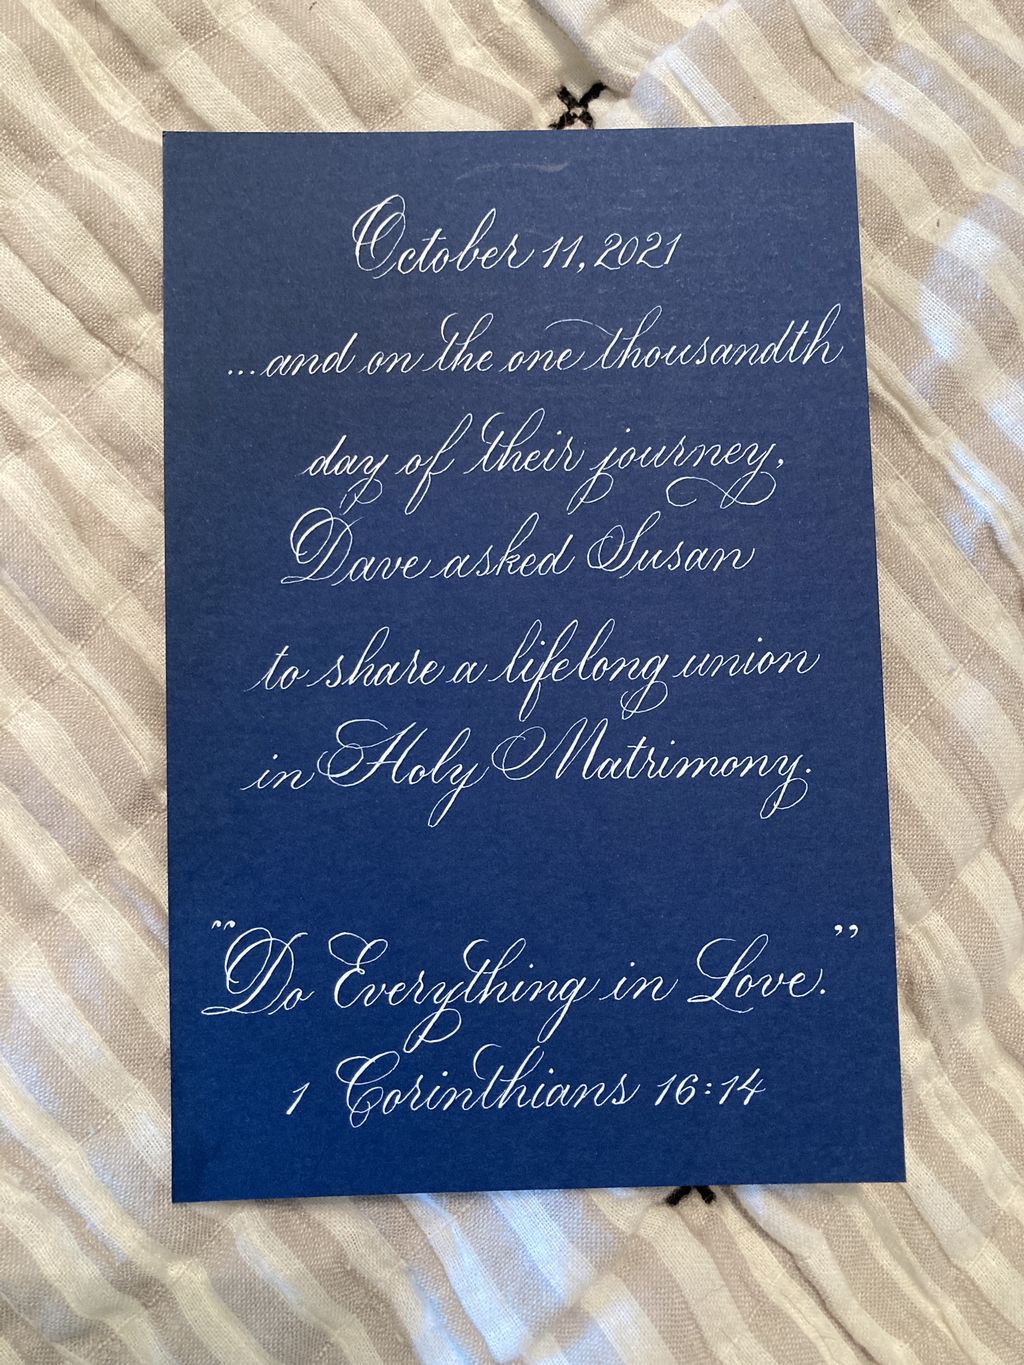 October 11, 2021
...and on the one thousandth
day of their journey,
Dave asked Susan
to share a lifelong union
in Holy Matrimony.
"Do Everything in Love."
1 Corinthians 16:14